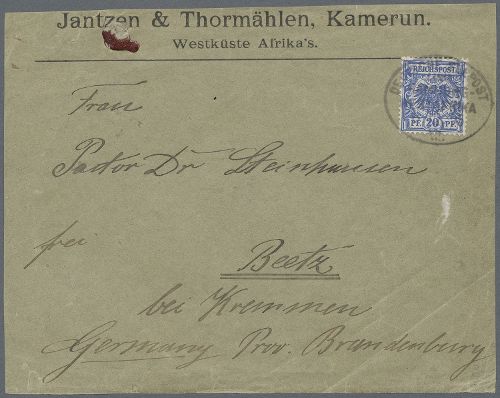 Jantzen & Thormählen, Kamerun.
Westküste Afrika's.
REICHSPOST
PF. 20 PF.
Frau
Pastor Dr Steinhausen
frei
Beetz
bei Kremmen
Germany Prov. Brandenburg